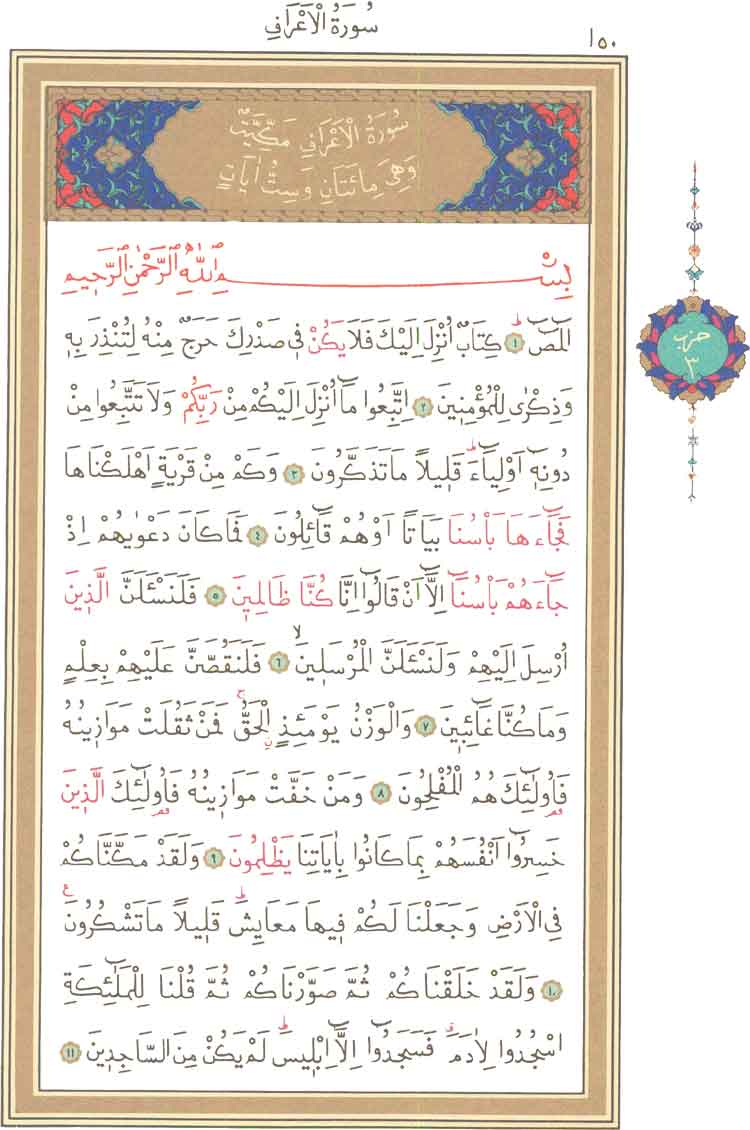 سُورَةُ الْاَعْرَافِ
١٥٠
سُورَةُ الْاَعْرَافِ مَكِّيَّةٌ
وَهِيَ مِائَتَانِ وَسِتُّ اٰيَاتٍ
بِسْمِ اللّٰهِ الرَّحْمٰنِ الرَّحٖيمِ
حزب
٣
الٓمٓصٓ ﴿١﴾ كِتَابٌ اُنْزِلَ اِلَيْكَ فَلَا يَكُنْ فٖي صَدْرِكَ حَرَجٌ مِنْهُ لِتُنْذِرَ بِهٖ
وَذِكْرٰى لِلْمُؤْمِنٖينَ ﴿٢﴾ اِتَّبِعُوا مَٓا اُنْزِلَ اِلَيْكُمْ مِنْ رَبِّكُمْ وَلَا تَتَّبِعُوا مِنْ
دُونِهٖٓ اَوْلِيَٓاءَۜ قَلٖيلاً مَا تَذَكَّرُونَ ﴿٣﴾ وَكَمْ مِنْ قَرْيَةٍ اَهْلَكْنَاهَا
فَجَٓاءَهَا بَأْسُنَا بَيَاتًا اَوْ هُمْ قَٓائِلُونَ ﴿٤﴾ فَمَا كَانَ دَعْوٰيهُمْ اِذْ
جَٓاءَهُمْ بَأْسُنَٓا اِلَّٓا اَنْ قَالُٓوا اِنَّا كُنَّا ظَالِمٖينَ ﴿٥﴾ فَلَنَسْـَٔلَنَّ الَّذٖينَ
اُرْسِلَ اِلَيْهِمْ وَلَنَسْـَٔلَنَّ الْمُرْسَلٖينَۙ ﴿٦﴾ فَلَنَقُصَّنَّ عَلَيْهِمْ بِعِلْمٍ
وَمَا كُنَّا غَٓائِبٖينَ ﴿٧﴾ وَالْوَزْنُ يَوْمَئِذٍ الْحَقُّۚ فَمَنْ ثَقُلَتْ مَوَازٖينُهُ
فَاُو۬لٰٓئِكَ هُمُ الْمُفْلِحُونَ ﴿٨﴾ وَمَنْ خَفَّتْ مَوَازٖينُهُ فَاُو۬لٰٓئِكَ الَّذٖينَ
خَسِرُٓوا اَنْفُسَهُمْ بِمَا كَانُوا بِاٰيَاتِنَا يَظْلِمُونَ ﴿٩﴾ وَلَقَدْ مَكَّنَّاكُمْ
فِي الْاَرْضِ وَجَعَلْنَا لَكُمْ فٖيهَا مَعَايِشَۜ قَلٖيلاً مَا تَشْكُرُونَ
﴿١٠﴾ وَلَقَدْ خَلَقْنَاكُمْ ثُمَّ صَوَّرْنَاكُمْ ثُمَّ قُلْنَا لِلْمَلٰٓئِكَةِ
اسْجُدُوا لِاٰدَمَۗ فَسَجَدُٓوا اِلَّٓا اِبْلٖيسَۜ لَمْ يَكُنْ مِنَ السَّاجِدٖينَ ﴿١١﴾